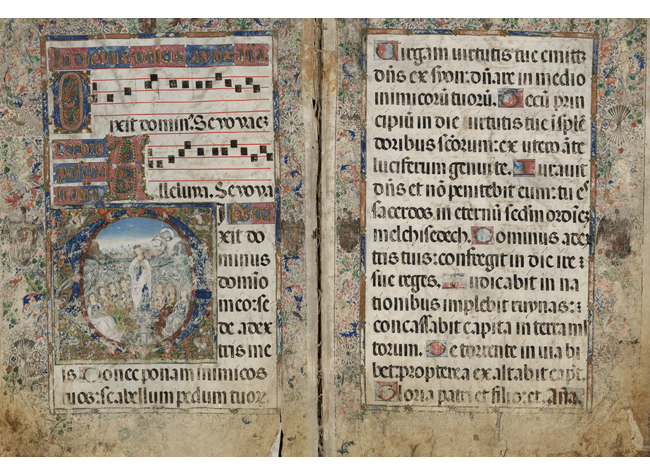 In diebus
Dixit domin'. Sevovaez
Tempore
pascha
Alleluia. Sevova
Dixit do
minus
domio
meo: se
de a dex
tris me
is. Donec ponam inimicos
tuos: scabellum pedum tuor.
Virgam uirtutis tue emittz
dñs ex syon: dñare in medio
inimicorū tuorū. Tecū prin
cipiū in die uirtutis tue ī splē
doribus sc̄orum: ex utero āte
luciferum genui te. Iurauit
dñs et nō penitebit eum: tu es
sacerdos in eternū sc̄dm ordiēz
melchisedech. Dominus a dex
tris tuis: confregit in die ire
sue reges. Iudicabit in na
tionibus implebit ruynas:
concassabit capita in terra ml
torum. De torrente in uia bi
bet: propterea exaltabit capt.
Gloria patri et filio: et. Aña.